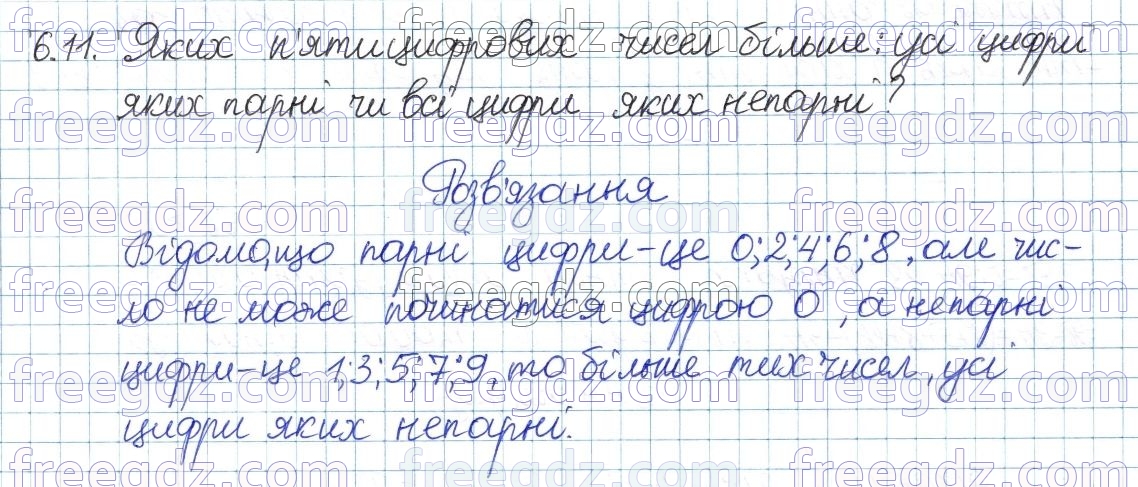 6.11. Яких п'ятицифрових чисел більше: усі цифри
яких парні чи всі цифри яких непарні?
Розв'язання
Відомо, що парні цифри – це 0; 2; 4; 6; 8, але чис-
ло не може починатися цифрою 0, а непарні
цифри – це 1; 3; 5; 7; 9, то більше тих чисел, усі
цифри яких непарні.
freegdz.com